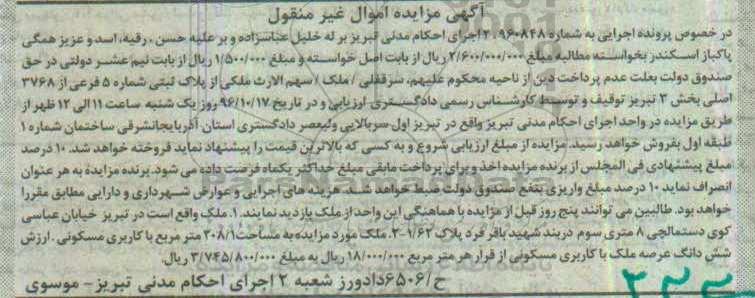 آگهی مزایده اموال غیر منقول
در خصوص پرونده اجرایی به شماره ۲۰۹۶۰۸۴۸ اجرای احکام مدنی تبریز بر له خلیل عباسزاده و بر علیه حسن ، رقیه، اسد و عزیز همگی
پاکباز اسکندر بخواسته مطالبه مبلغ ۲/۶۰۰/۰۰۰/۰۰۰ ریال از بابت اصل خواسته و مبلغ ۱/۵۰۰/۰۰۰ ریال از بابت نیم عشر دولتی در حق
صندوق دولت بعلت عدم پرداخت دین از ناحیه محکوم علیهم، سرقفلی / ملک / سهم الارث ملکی از پلاک ثبتی شماره ۵ فرعی از ۳۷۶۸
اصلی بخش ۳ تبریز توقیف و توسط کارشناس رسمی دادگستری ارزیابی و در تاریخ ۹۶/۱۰/۱۷ روز یک شنبه ساعت ۱۱ الی ۱۲ ظهر از
طریق مزایده در واحد اجرای احکام مدنی تبریز واقع در تبریز اول سربالایی ولیعصر دادگستری استان آذربایجانشرقی ساختمان شماره ۱
طبقه اول بفروش خواهد رسید. مزایده از مبلغ ارزیابی شروع و به کسی که بالاترین قیمت را پیشنهاد نماید فروخته خواهد شد. ۱۰ درصد
مبلغ پیشنهادی فی المجلس از برنده مزایده اخذ و برای پرداخت مابقی مبلغ حداکثر یکماه فرصت داده می شود. برنده مزایده به هر عنوان
انصراف نماید ۱۰ درصد مبلغ واریزی بنفع صندوق دولت ضبط خواهد شد. هزینه های اجرایی و عوارض شهرداری و دارایی مطابق مقررا
خواهد بود. طالبین می توانند پنج روز قبل از مزایده با هماهنگی این واحد از ملک بازدید نمایند. ۱. ملک واقع است در تبریز خیابان عباسی
کوی دستمالچی ۸ متری سوم دربند شهید باقر فرد پلاک ۱/۶۲ ۲-ملک مورد مزایده به مساحت ۲۰۸/۱ متر مربع با کاربری مسکونی . ارزش
شش دانگ عرصه ملک با کاربری مسکونی از قرار هر متر مربع ۱۸/۰۰۰/۰۰۰ ریال به مبلغ ۳/۷۴۵/۸۰۰/۰۰۰ ریال.
ح/۶۵۰۶ دادورز شعبه ۲ اجرای احکام مدنی تبریز- موسوی